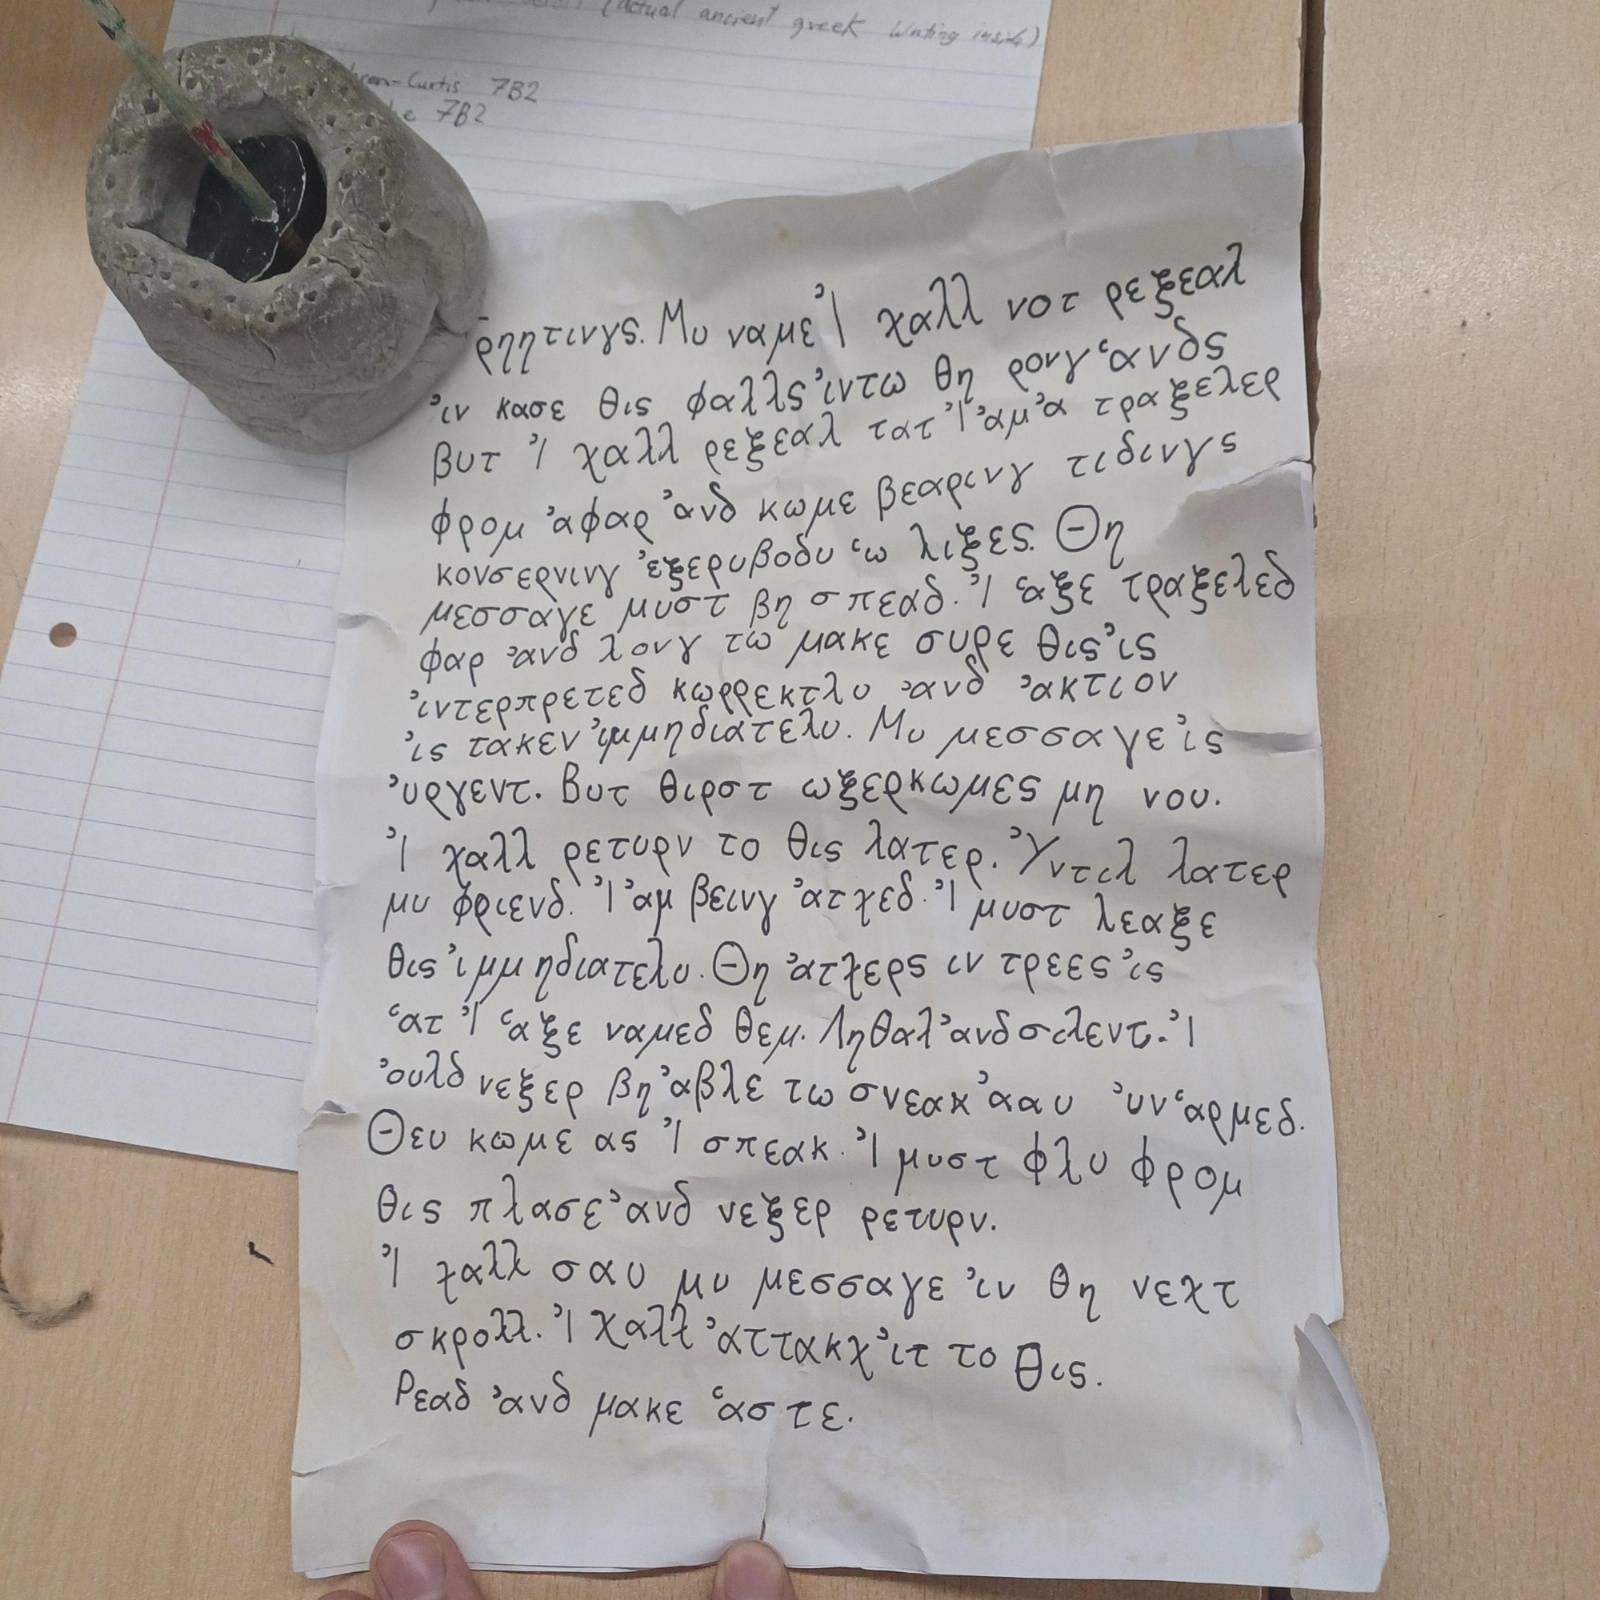 (actual ancient greek Writing inside)
-Curtis 7B2
7B2
ρηητινγς. Μυ ναμε Ἰ χαλλ νοτ ρεξεαλ
ἰν κασε θις φαλλς ἰντω θη ρονγ ἁνδς
βυτ Ἰ χαλλ ρεξεαλ τατ Ἰ ἀμ ἀ τραξελερ
φρομ ἀφαρ ἀνδ κωμε βεαρινγ τιδινγς
κονσερνινγ ἐξερυβοδυ ὡ λιξες. Θη
μεσσαγε μυστ βη σπεαδ. Ἰ ἑαξε τραξελεδ
φαρ ἀνδ λονγ τω μακε συρε θις ἰς
ἰντερπρετεδ κωρρεκτλυ ἀνδ ἀκτιον
ἰς τακεν ἰμμηδιατελυ. Μυ μεσσαγε ἰς
ὐργεντ. βυτ θιρστ ωξερκωμες μη νου.
Ἰ χαλλ ρετυρν το θις λατερ. Υ̓ντιλ λατερ
μυ φριενδ. Ἰ ἀμ βεινγ ἀτχεδ. Ἰ μυστ λεαξε
θις ἰμμηδιατελυ. Θη ἀτχερς ιν τρεες ἰς
ἁτ Ἰ ἁξε ναμεδ θεμ. Ληθαλ ἀνδ σιλεντ. Ἰ
ὀυλδ νεξερ βη ἀβλε τω σνεακ ἀαυ ὐν ἁρμεδ.
Θευ κωμε ας Ἰ σπεακ. Ἰ μυστ φλυ φρομ
θις πλασε ἀνδ νεξερ ρετυρν.
Ἰ χαλλ σαυ μυ μεσσαγε ἰν θη νεχτ
σκρολλ. Ἰ χαλλ ἀττακχ ἰτ το θις.
Ρεαδ ἀνδ μακε ἁστε.